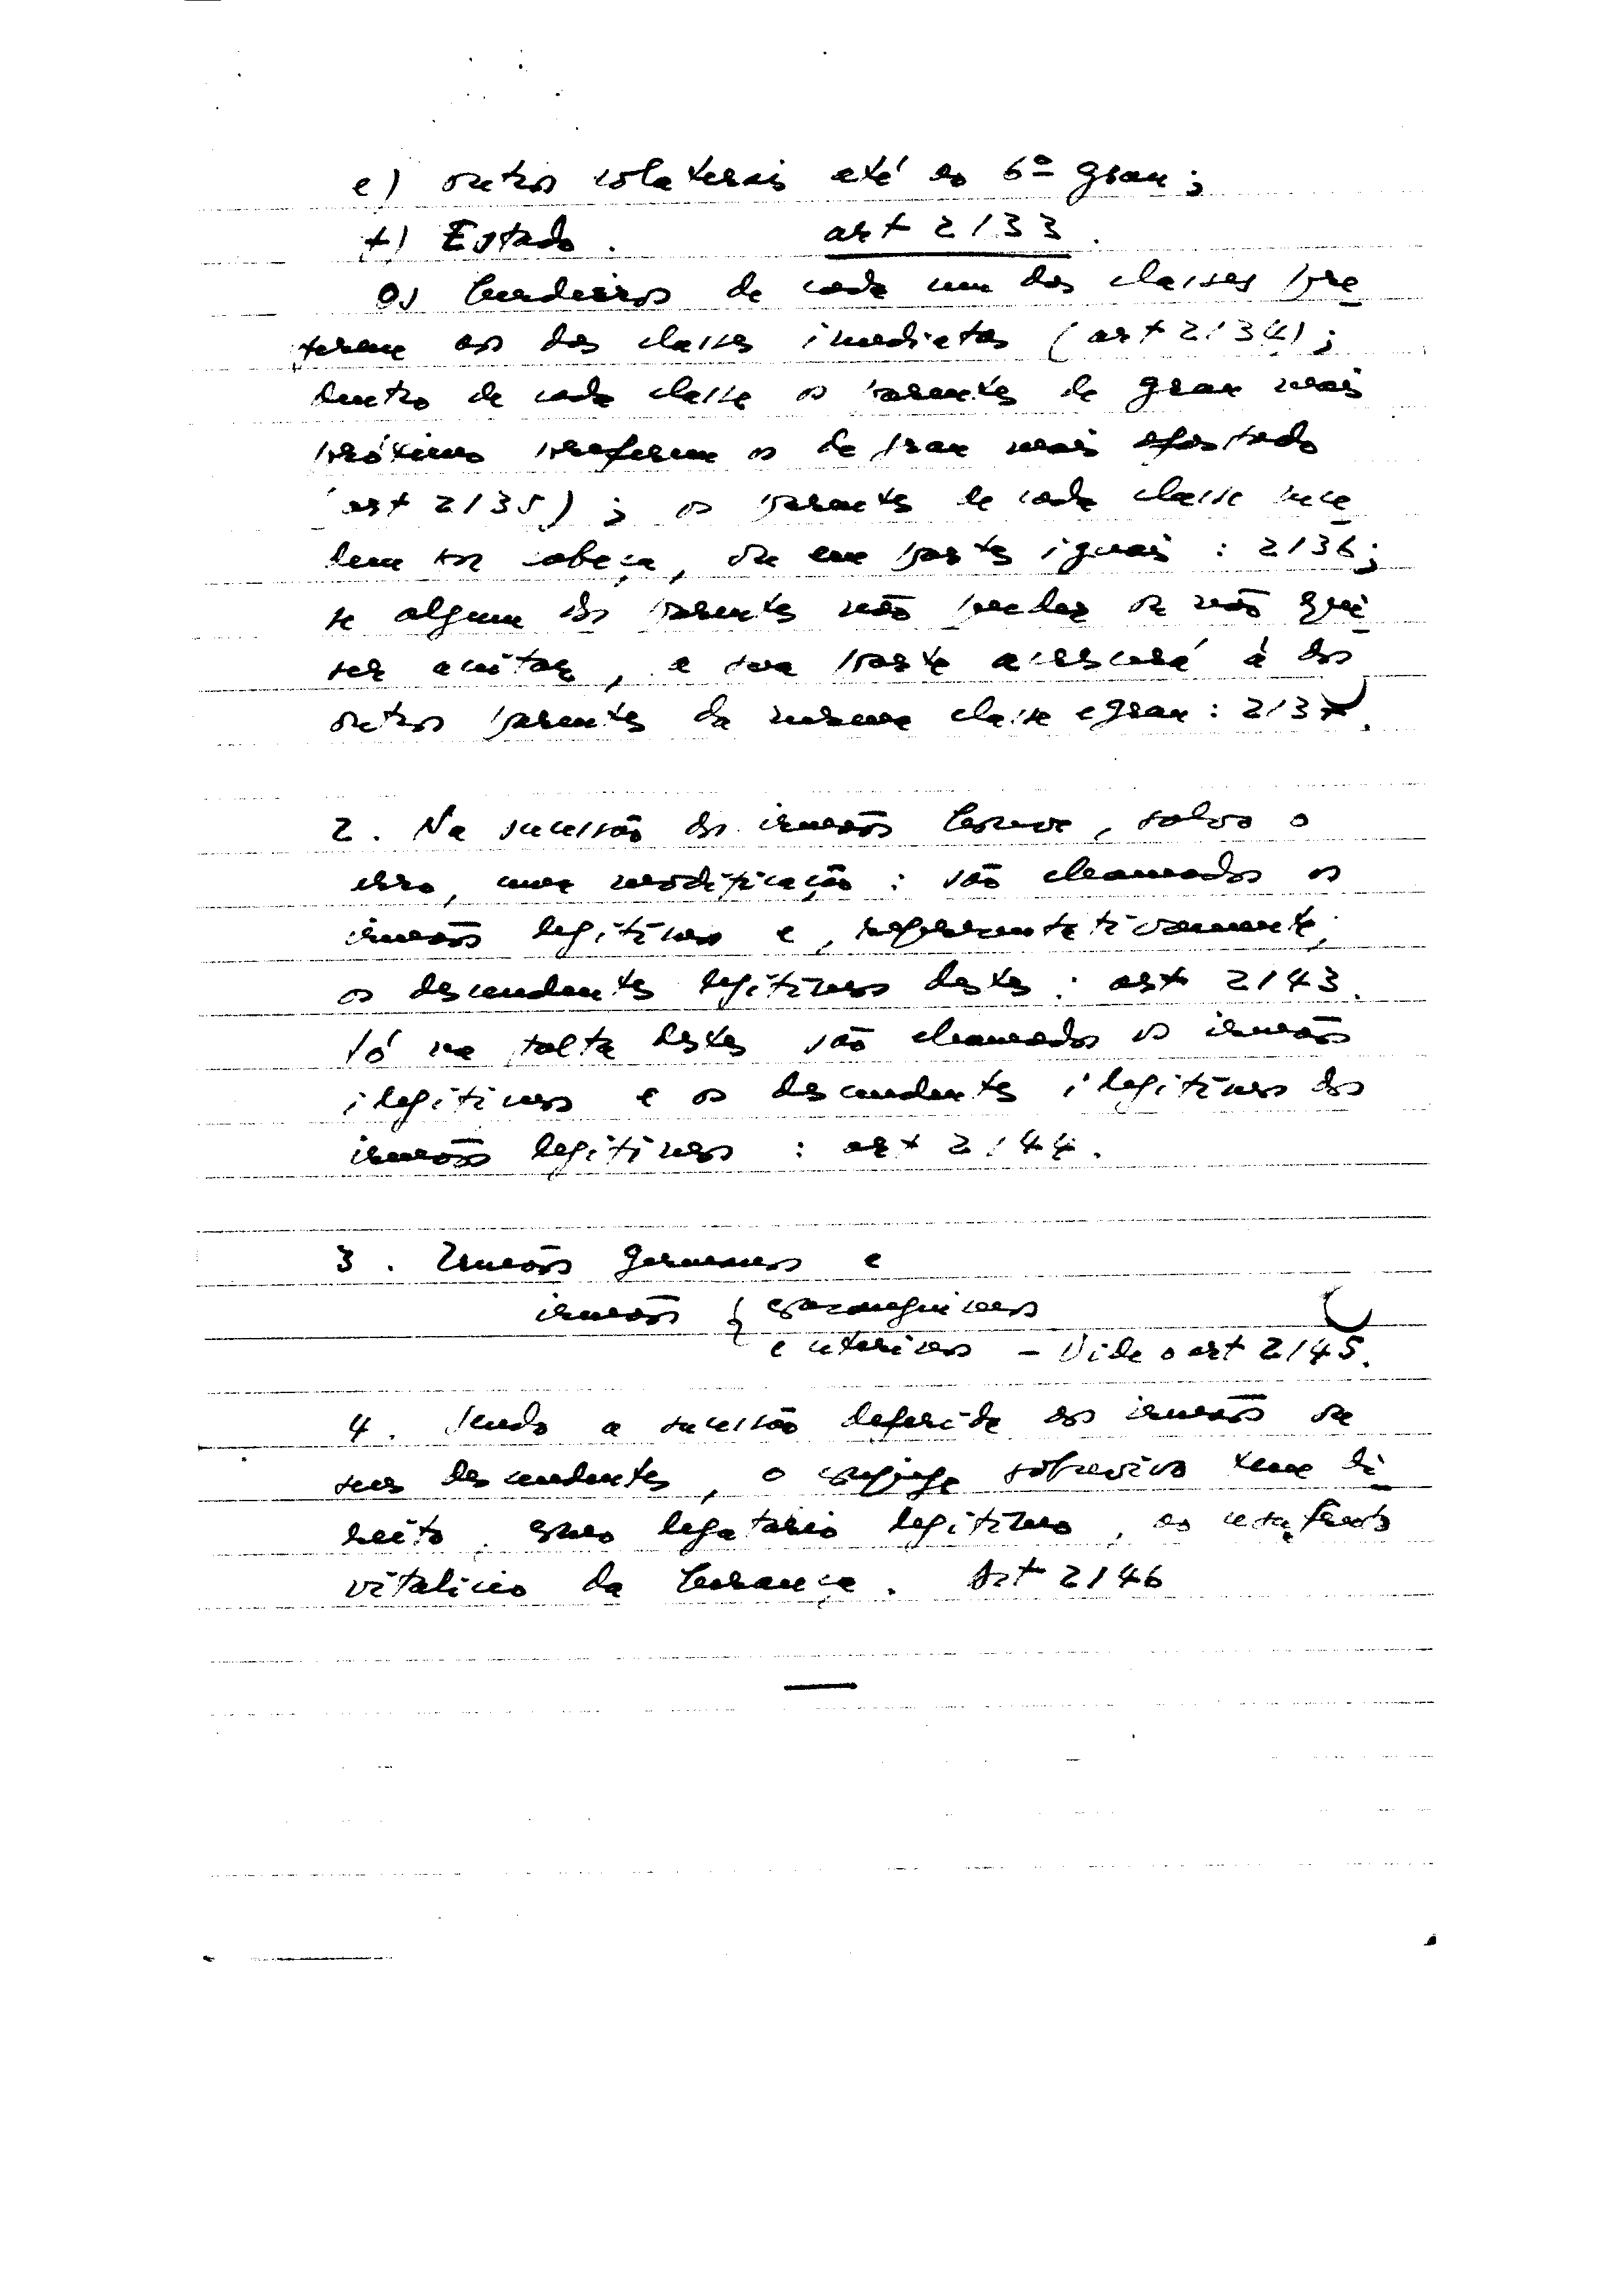 e) outros colaterais até ao 6º grau;
f) Estado. art 2133.
Os herdeiros de cada uma das classes pre
ferem aos das classes imediatas (art 2134);
dentro de cada classe os parentes de grau mais
próximo preferem os de grau mais afastado
(art 2135); os parentes de cada classe suce
dem por cabeça, ou em partes iguais: 2136;
se algum dos parentes não puder ou não qui
ser aceitar, a sua parte acrescerá à dos
outros parentes da mesma classe e grau: 2137.
2. Na sucessão dos irmãos houve, salvo o
erro, uma modificação: são chamados os
irmãos legítimos e, representativamente,
os descendentes legítimos destes: art 2143.
Só na falta destes são chamados os irmãos
ilegítimos e os descendentes ilegítimos dos
irmãos legítimos: art 2144.
3. Irmãos germanos e
irmãos { consanguíneos
e uterinos - Vide o art 2145.
4. Sendo a sucessão deferida aos irmãos ou
seus descendentes, o cônjuge sobrevivo tem di
reito, como legatário legítimo, ao usufruto
vitalício da herança. Art 2146